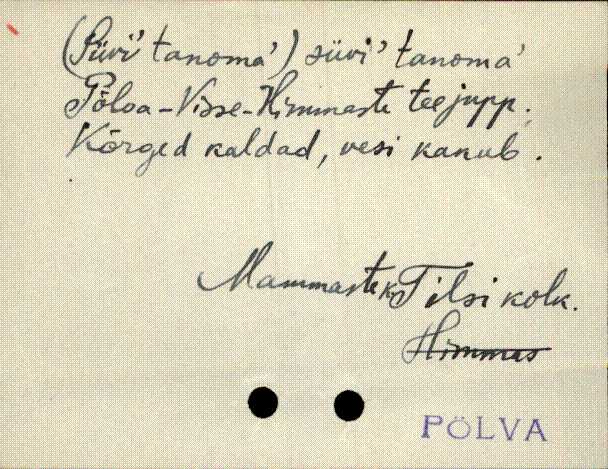 (Süvi' tanoma') süvi' tanoma'
Põlva-Visse-Himmaste teejupp.
Kõrged kaldad, vesi kanub.
Mammaste k. Tilsi kolk.
Himmas
PÕLVA